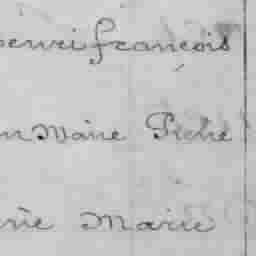 henri françois
Marie Piché
rie Marie